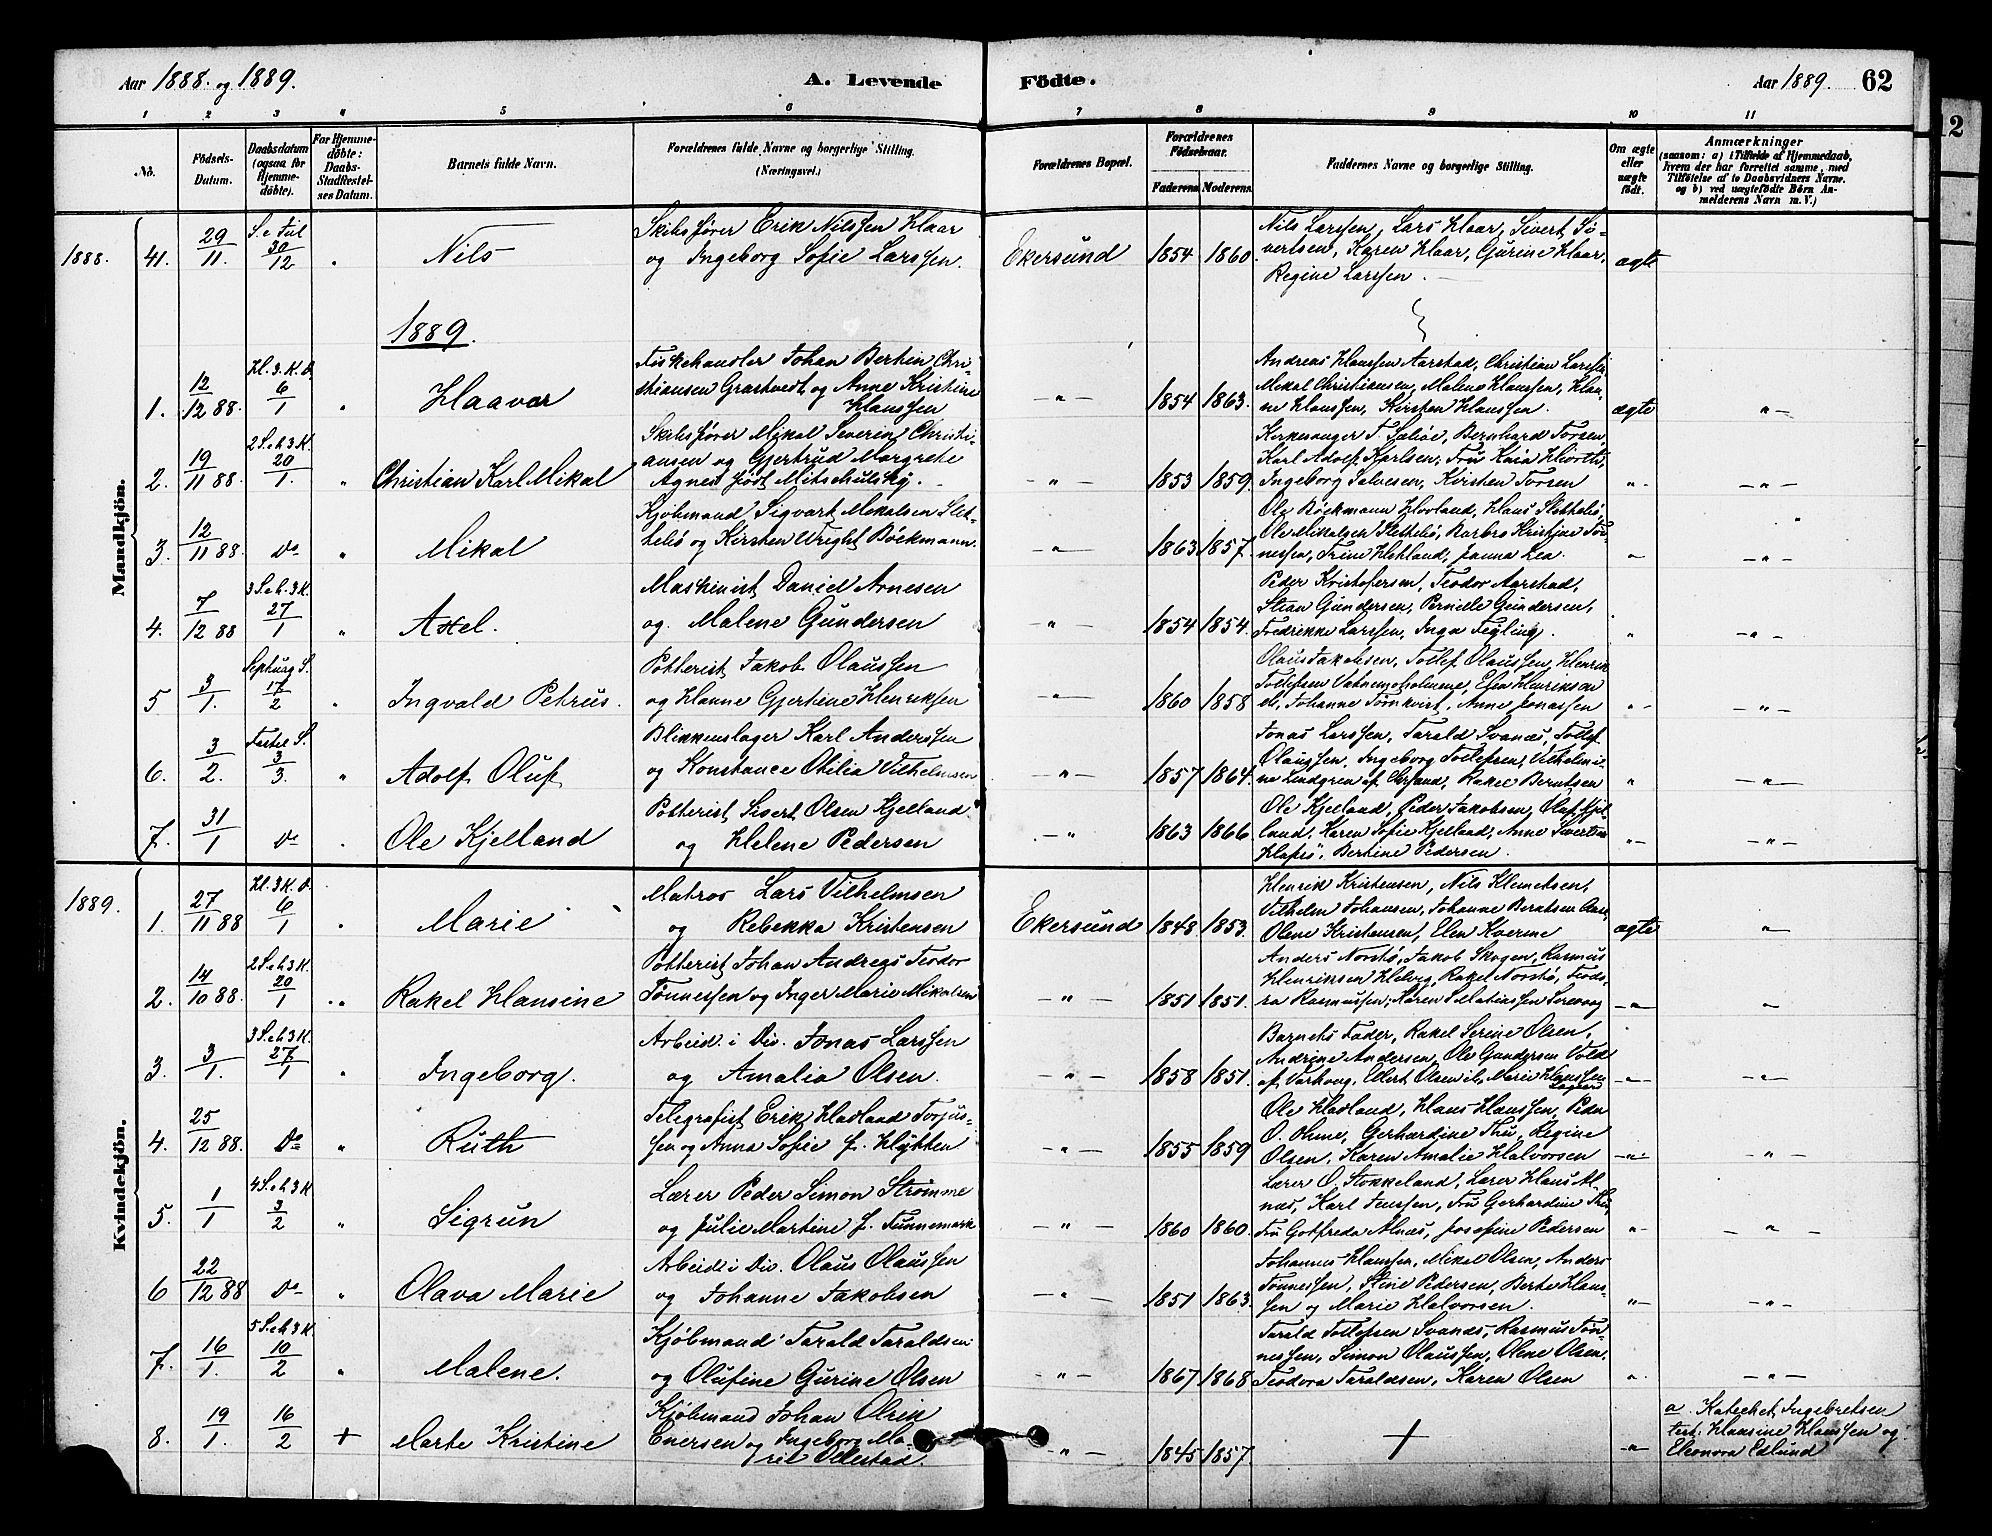 Aar 1888. og 1889.
A. Levende
Födte.
Aar 1889.
62
12
1 2 3 " 5 6 7 8 9 10 11
No.
Födsels-
Datum.
Daabsdatum
(ogsaa for
Hjemme-
döbte).
For Hjemme-
döbte:
Daabs-
Stadfæstel-
ses Datum.
Barnets fulde Navn.
Forældrenes fulde Navne og borgerlige Stilling.
(Næringsvei.)
Forældrenes Bopæl.
Forældrenes
Födselsaar.
Faderens. Moderens.
Faddernes Navne og borgerlige Stilling.
Om ægte
eller
uægte
födt.
Anmærkninger
(saasom: a) i Tilfælde af Hjemmedaab,
hvem der har forrettet samme, med
Tilföielse af to Daabsvidners Navne.
og b) ved uægtefödte Börn An-
melderens Navn m. V.)
Mandkjön.
1888. 41. 29/11. S. e. Jul 30/12 " Nils
Skibsfører Erik Nilssen Haar
og Ingeborg Sofie Larssen.
Ekersund 1854 1860.
Nils Larssen, Lars Haar, Sivert Si-
vertsen, Karen Haar, Gurine Haar,
Regine Larssen.
ægte
1889.
1. 12/12 88. Hl. 3. K. D. 6/1 " Haavar
Fiskehandler Johan Bertin Chri-
stiansen Grastvedt og Anne Kristine
Hanssen
-"- 1854 1863.
Andreas Hanssen Aarstad, Christian Larssen,
Mikal Christiansen, Malene Hanssen, Han-
ne Hanssen, Kirsten Hanssen.
ægte "-
2. 19/11 88. 2 S. e. h. 3 K. 20/1. " Christian Karl Mikal
Skibsfører Mikal Severin Christi-
ansen og Gjertrud Margrethe
Agnes født Mitschulsky.
-"- 1853 1859.
Kirkesanger T. Sæliøe, Bernhard Torsen,
Karl Adolf Karlsen, Fru Kaia Hiorth,
Ingeborg Salvesen, Kirsten Torsen
"- -"-
3. 12/11 88. Do " Mikal
Kjøbmand Sigvart Mikalsen Slet-
tebø og Kirsten Wright Böckmann.
-"- 1863 1857.
Ole Böckmann Hovland, Hans Slettebö,
Ole Mikalsen Slettebö, Barbro Kristine Tön-
nesen, Trine Hetland, Janna Lea.
" -"-
4. 7/12 88 3 S. e. h. 3 K. 27/1 " Axel.
Maskinist Daniel Arnesen
og. Malene Gundersen
-"- 1854 1854.
Peder Kristofersen, Teodor Aarstad,
Stian Gundersen, Pernille Gundersen,
Fredrikke Larssen, Inga Fegling.
" -"-
5 3/1. Septuag S. 17/2 " Ingvald Petrus.
Potterist Jakob Olaussen
og Hanne Gjertine Henriksen
-"- 1860 1858
Olaus Jakobsen, Tollef Olaussen, Henrik
Tollefsen Vatnemoholmene, Elen Henriksen
Johanne Törnkvist, Anne Jonassen
"- -"-
6. 3/2. Fastel. S. 3/3. " Adolf Oluf
Blikkenslager Karl Anderssen
og Konstance Otilia Vilhelmsen
-"- 1857 1864.
Jonas Larssen, Tarald Svanes, Tollef
Olaussen, Ingeborg Tollefsen, Vilhelmi-
ne Lindgren af Chrsand, Rakel Berntsen
" -"-
7. 31/1 Do " Ole Kjelland
Potterist Sivert Olsen Kjelland
og Helene Pedersen
-" 1863 1866.
Ole Kjelland, Peder Jakobsen, Oluf Kjel-
land, Karen Sofie Kjelland, Anne Sivertsen
Hafsö, Bertine Pedersen.
"- -"-
Kvindekjön.
1889. 1. 27/11 88 Hl. 3 K. D. 6/1 " Marie
Matros Lars Vilhelmsen
og Rebekka Kristensen
Ekersund 1848. 1853.
Henrik Kristensen, Nils Klemetsen,
Vilhelm Johansen, Johanne Berntsen Aase,
Olene Kristensen, Elen Kverme
ægte "
2. 14/10 88. 2 S. e. h. 3 K. 20/1 " Rakel Hansine
Potterist Johan Andreas Teodor
Tönnessen og Inger Marie Mikalsen
-"- 1851 1851.
Anders Norstö, Jakob Skogen, Rasmus
Henrikssen Helvig, Rakel Norstö, Teodo-
ra Rasmussen, Karen S. Matiassen Sirevaag
-"- "
3. 3/1. 3 S. e. h. 3 K. 27/1 " Ingeborg.
Arbeid. i Div. Jonas Larssen
og Amalia Olsen.
-"- 1858 1851.
Barnets Fader, Rakel Serine Olsen,
Andrine Andersen, Ole Gundersen Vold
af Varhoug, Ellert Olsen Eie, Marie Hanssen
-"- -"-
4. 25/12 88. Do " Ruth
Telegrafist Erik Hadland Torjus-
sen og Anna Sofie f. Klykken.
-"- 1855 1859
Ole Hadland, Hans Hanssen, Peder
O. Ohme, Gerhardine Thu, Regine
Olsen, Karen Amalie Halvorsen
-"- "-
5. 1/1 4 S. e. h. 3 K. 3/2 " Sigrun
Lærer Peder Simon Strømme
og Julie Martine f. Tunnemark
-"- 1860 1860.
Lærer O. Stokkeland, Lærer Hans Al-
næs, Karl Jenssen, Fru Gerhardine Thu,
Fru Gotfreda Alnæs, Josefine Pedersen
"- - " -
6 22/12 88 Do " Olava Marie
Arbeid. i Div. Olaus Olaussen
og Johanne Jakobsen
-"- 1851 1863.
Johannes Hanssen, Mikal Olsen, Anders
Tönnessen, Stine Pedersen, Berte Hans-
sen og Marie Halvorsen.
"- -"-
7. 16/1. 5 S. e. h. 3 K. 10/2 " Malene.
Kjöbmand Tarald Taraldsen
og Olufine Gurine Olsen
-"- 1867 1868
Tarald Tollefsen Svanes, Rasmus Tön-
nessen, Simon Olaussen, Olene Olsen,
Teodora Taraldsen, Karen Olsen
" -"-
8. 19/1. 16/2 + Marte Kristine
Kjöbmand Johan Olrik
Eversen og Ingeborg Ma-
rie Ollestad.
-"- 1845 1857.
+
-"-
a. Kateket Ingebretsen
test: Hansine Hanssen og
Eleonora Edlund